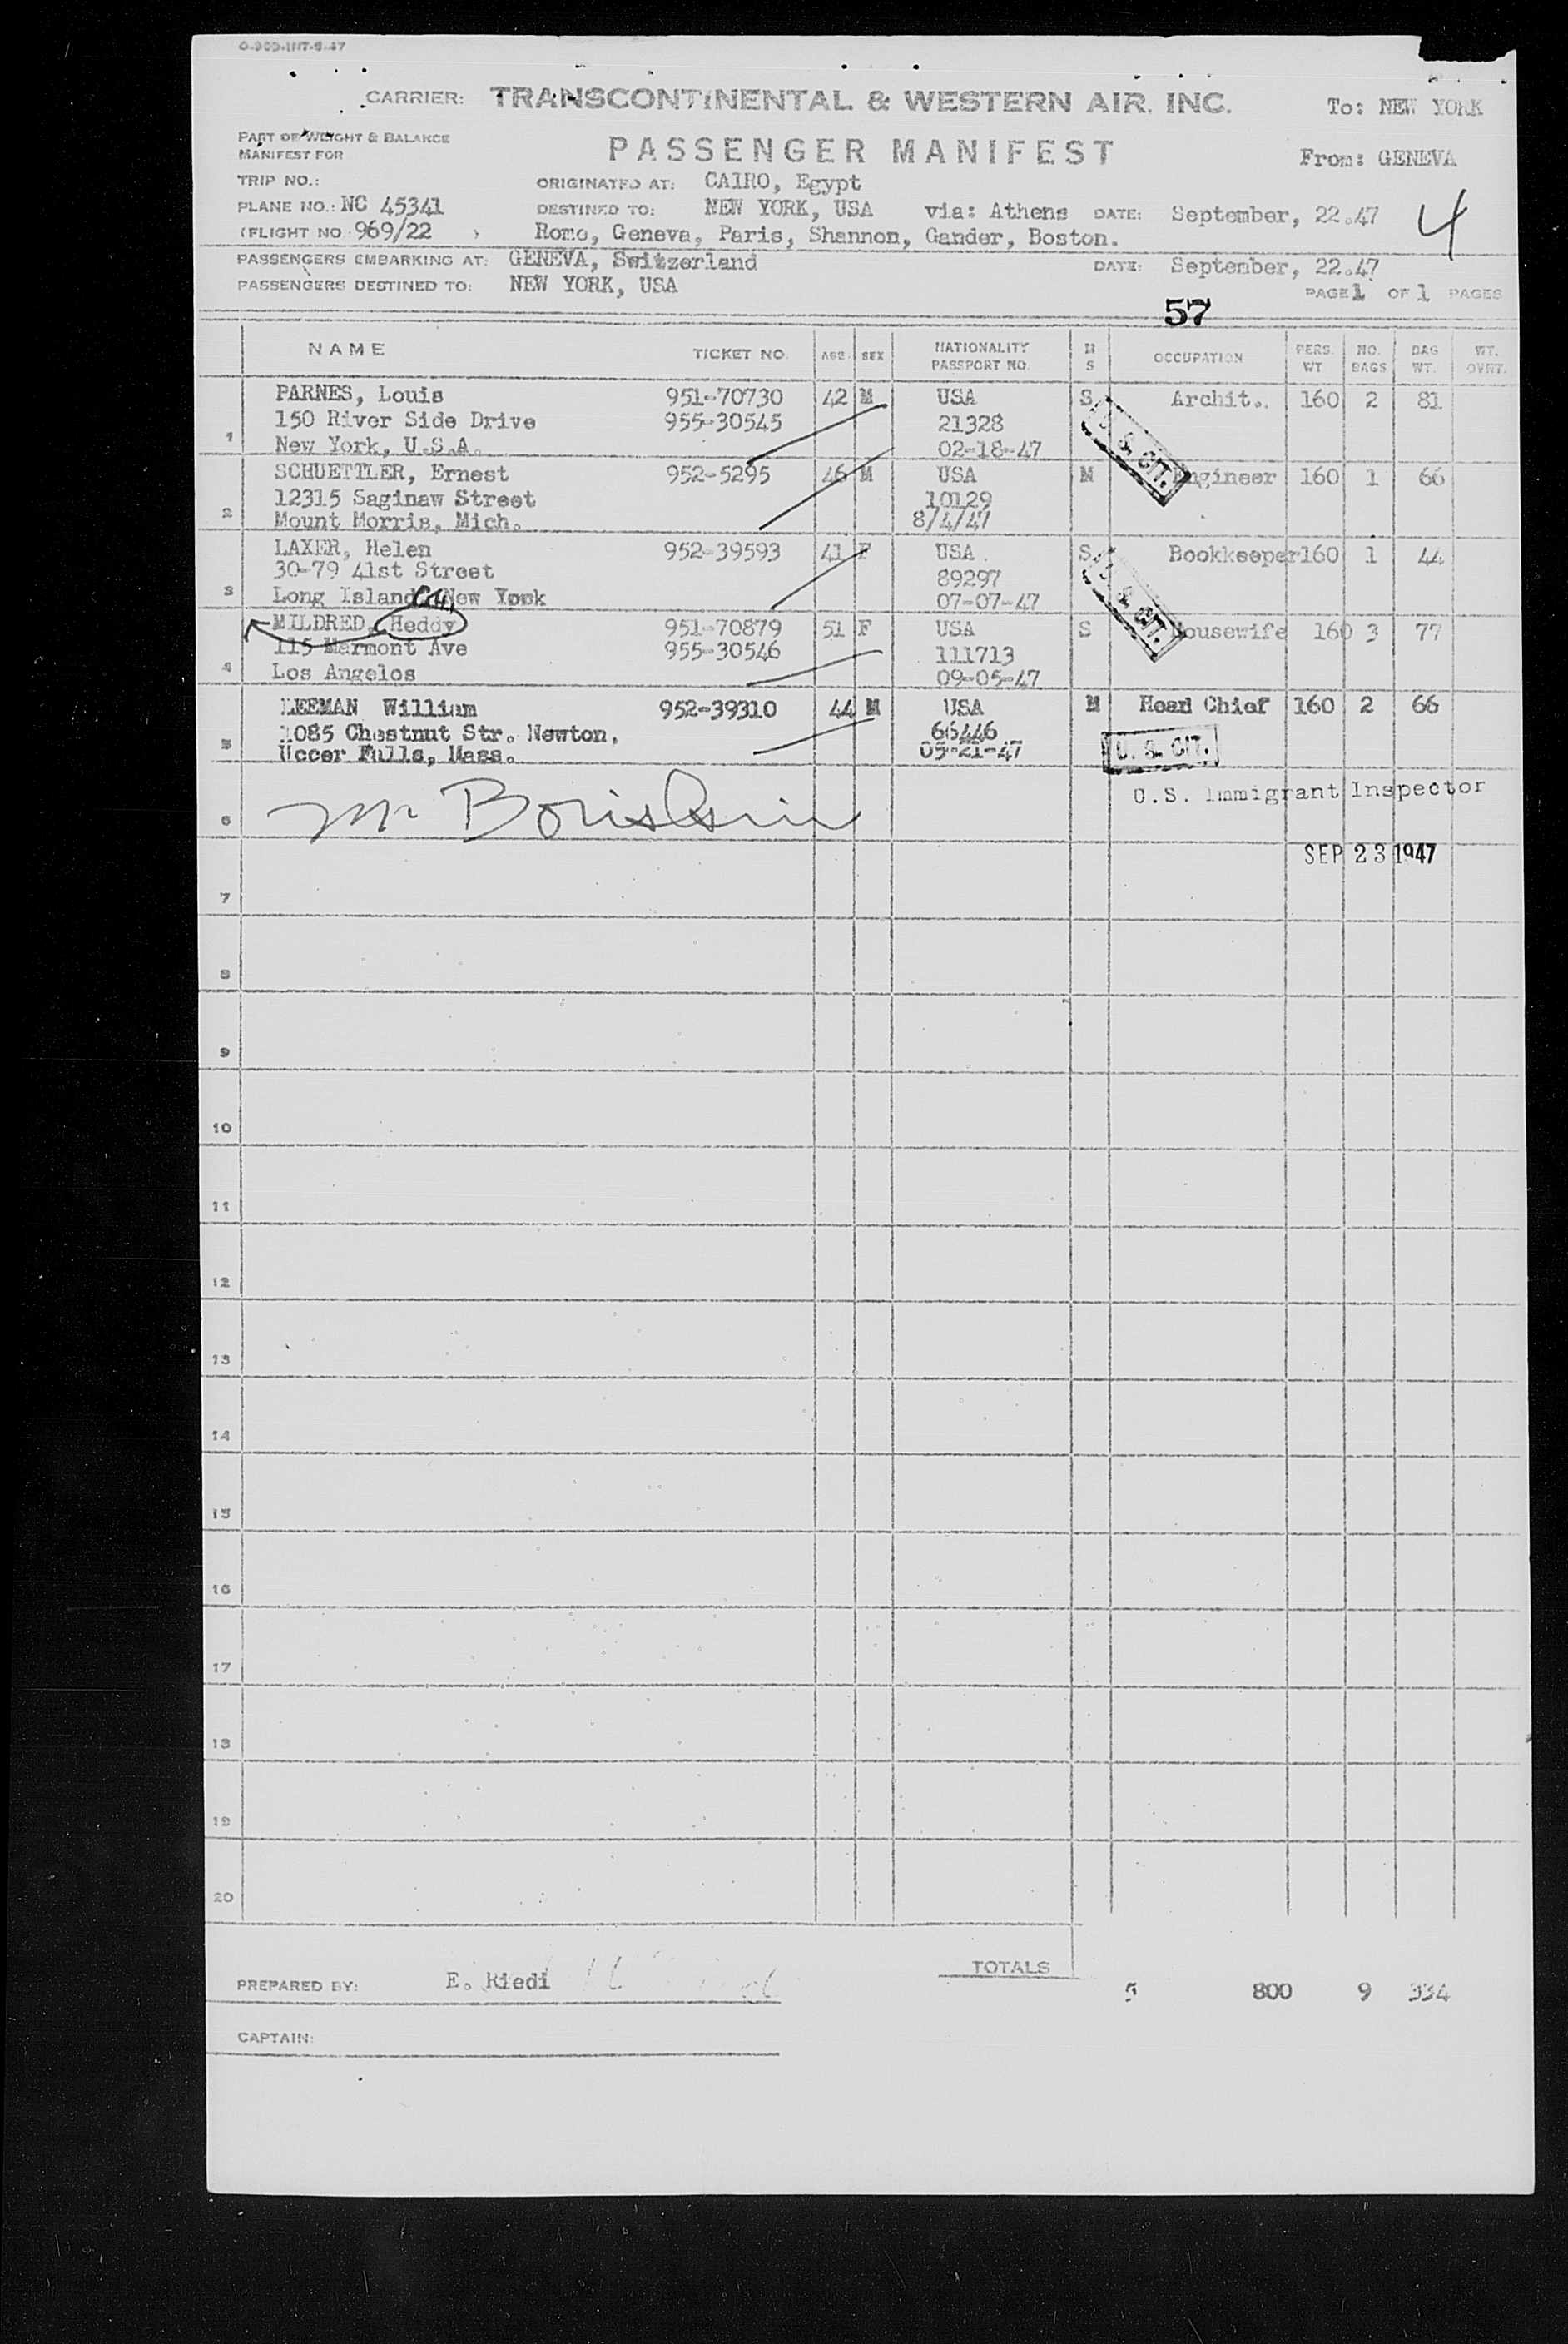 O-300-INT-5-47
CARRIER: TRANSCONTINENTAL & WESTERN AIR. INC. To: NEW YORK
PART OF WEIGHT & BALANCE
MANIFEST FOR
PASSENGER MANIFEST
From: GENEVA
TRIP NO.: ORIGINATED AT: CAIRO, Egypt
PLANE NO.: NC 45341 DESTINED TO: NEW YORK, USA via: Athens DATE: September, 22.47 4
(FLIGHT NO 969/22 ) Rome, Geneva, Paris, Shannon, Gander, Boston.
PASSENGERS EMBARKING AT: GENEVA, Switzerland DATE: September, 22.47
PASSENGERS DESTINED TO: NEW YORK, USA PAGE 1 OF 1 PAGES
57
NAME TICKET NO. AGE SEX NATIONALITY PASSPORT NO. M S OCCUPATION PERS. WT NO. BAGS BAG WT. WT. OVRT.
PARNES, Louis 951-70730 42 M USA S Archit. 160 2 81
150 River Side Drive 955-30545 21328
1 New York, U.S.A. 02-18-47
U. S. CIT.
SCHUETTLER, Ernest 952-5295 46 M USA M Engineer 160 1 66
12315 Saginaw Street 10129
2 Mount Morris, Mich. 8/4/47
LAXER, Helen 952-39593 41 F USA S Bookkeeper 160 1 44
30-79 41st Street 89297
3 Long Island City New York 07-07-47
U. S. CIT.
MILDRED, Heddy 951-70879 51 F USA S Housewife 160 3 77
115 Marmont Ave 955-30546 111713
4 Los Angelos 09-05-47
William 952-39310 44 M USA M Head Chief 160 2 66
1085 Chestnut Str. Newton, 66446
5 Upper Falls, Mass. 05-21-47
U. S. CIT.
U.S. Immigrant Inspector
6
SEP 23 1947
7
8
9
10
11
12
13
14
15
16
17
18
19
20
TOTALS
PREPARED BY: E. Riedi 5 800 9 334
CAPTAIN: